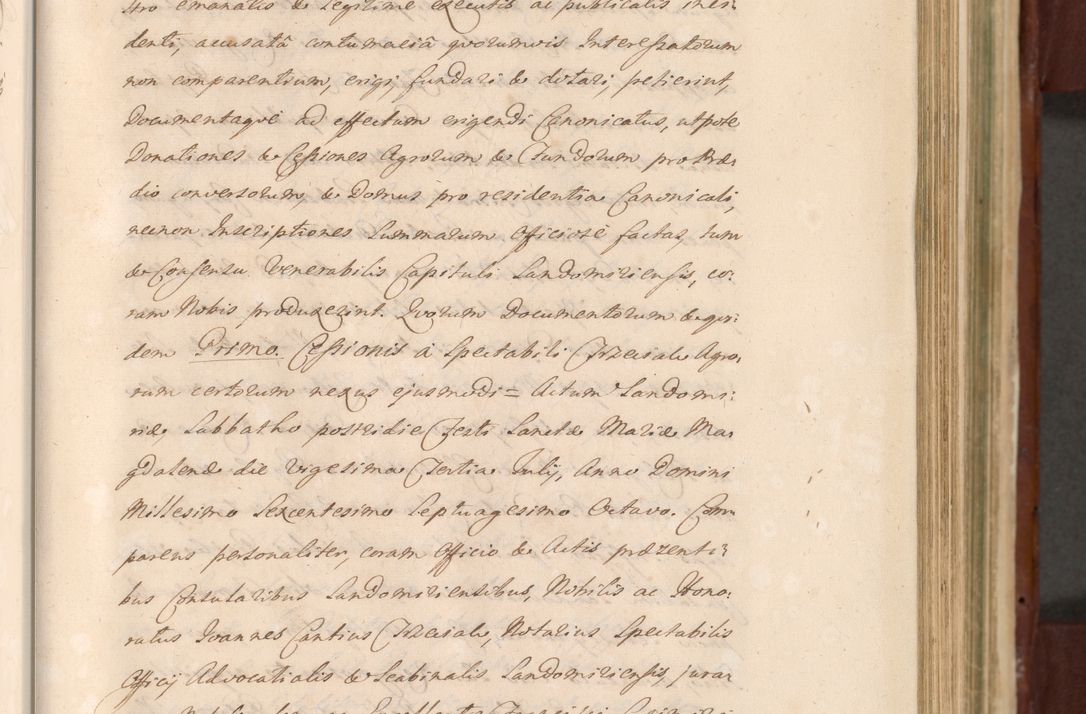 stro emanatis & Legitime executis ac publicatis inci:
denti, accusatâ contumaciâ quorumvis Interessatorum
non comparentium, erigi, fundari & dotari, petierint,
Documentaqve ad effectum erigendi Canonicatus, utpote
Donationes & Cessiones Agrorum & Fundorum pro Præ:
dio conversorum, & Domus pro residentia Canonicali,
necnon Inscriptiones Summarum Officiosè factas, tum
& Consensu Venerabilis Capituli Sandomiriensis, co:
ram Nobis produxerint. Quorum Documentorum & qvi:
dem Primo. Cessionis à Spectabili Trzecials Agro:
rum certorum nexus ejusmodi = Actum Sandomi:
riæ, Sabbatho postridie Festi Sanctæ Mariæ Ma:
gdalenæ die Vigesima Tertia July, Anno Domini
Millesimo Sexcentesimo Septuagesimo Octavo. Com:
parens personaliter, coram Officio & Actis præzenti:
bus Consularibus Sandomiriensibus, Nobilis ac Hono:
ratus Joannes Cantius Trzecials, Notarius Spectabilis
Officij Advocatialis & Scabinalis Sandomiriensis, jurat